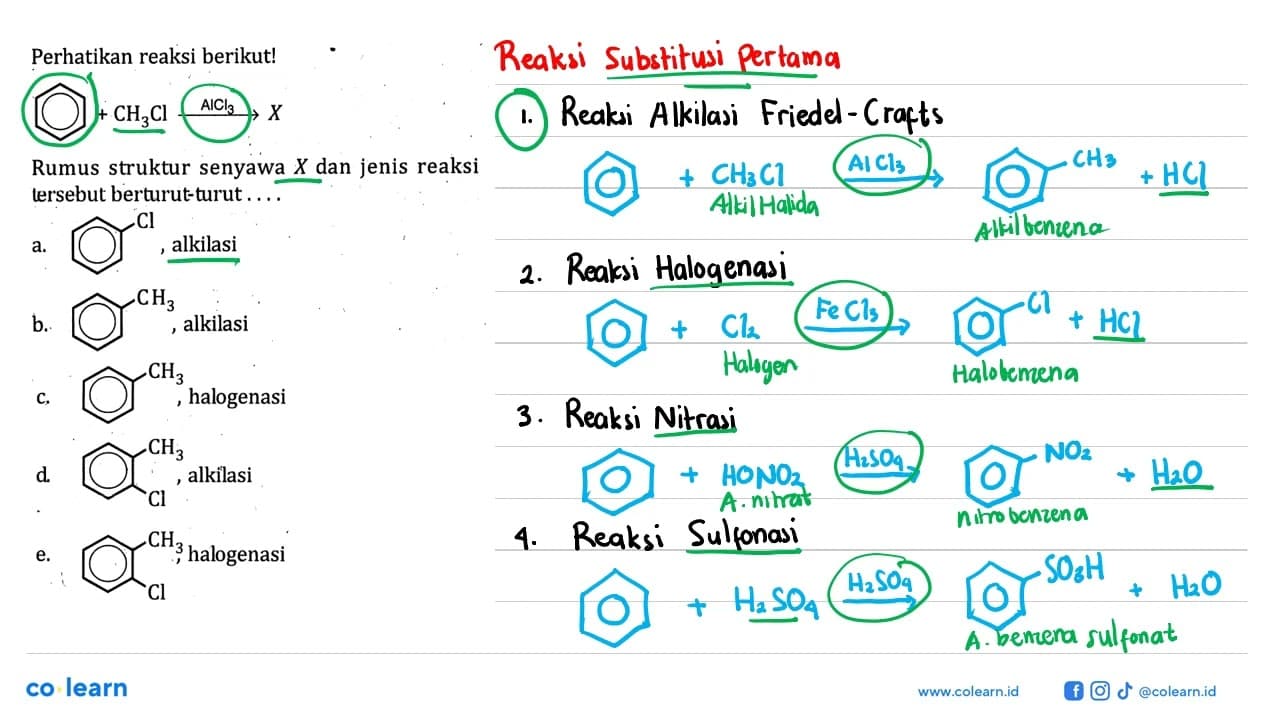 Perhatikan reaksi berikut!
+ CH3Cl AlCl3 → X
Rumus struktur senyawa X dan jenis reaksi
tersebut berturut-turut . . . .
a. Cl , alkilasi
b. CH3 , alkilasi
c. CH3 , halogenasi
d. CH3 Cl , alkilasi
e. CH3 Cl , halogenasi
Reaksi Substitusi Pertama
1. Reaksi Alkilasi Friedel-Crafts
+ CH3Cl AlCl3 → CH3 + HCl
Alkil Halida Alkilbenzena
2. Reaksi Halogenasi
+ Cl2 FeCl3 → Cl + HCl
Halogen Halobenzena
3. Reaksi Nitrasi
+ HONO2 H2SO4 → NO2 + H2O
A. nitrat nitrobenzena
4. Reaksi Sulfonasi
+ H2SO4 H2SO4 → SO3H + H2O
A. benzena sulfonat
co·learn
www.colearn.id @colearn.id